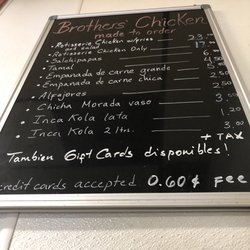 Brothers' Chicken
made to order
• Rotisserie Chicken w/fries and salad
• Rotisserie Chicken Only
• Salchipapas
• Tamal
• Empanada de carne grande
• Empanada de carne chica
• Alfajores
• Chicha Morada vaso
• Inca Kola lata
• Inca Kola 2 ltrs.
+ TAX
Tambien Gift Cards disponibles!
credit cards accepted 0.60¢ Fee